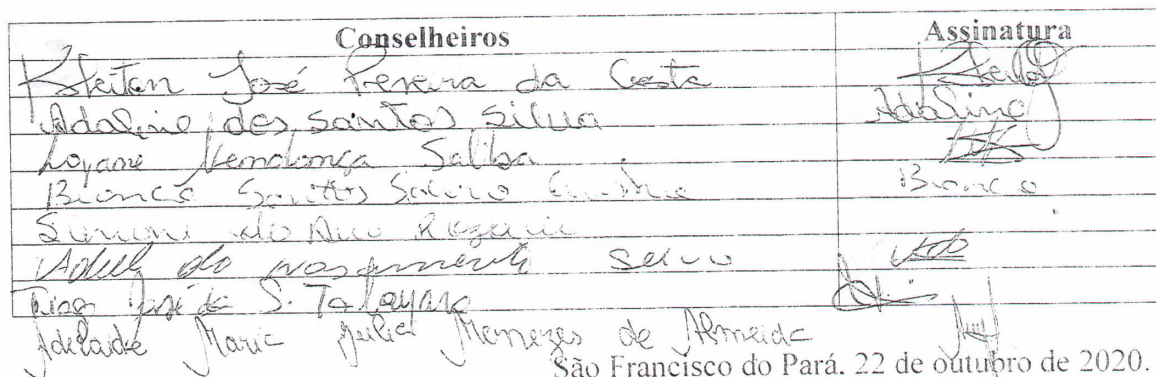 Conselheiros Assinatura
Kleiton José Pereira da Costa
Adaline dos Santos Silva Adaline
Loyane Mendonça Saliba
Bianca Santos Bianca
Simone do
do nascimento Silva
Tiago José da S. Tatayara
Adelaide Maria Júlia Menezes de Almeida
São Francisco do Pará, 22 de outubro de 2020.